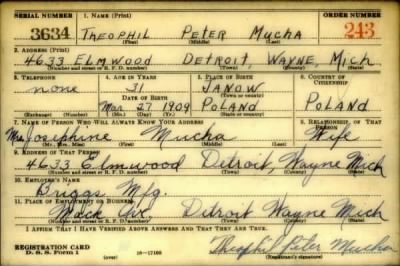 SERIAL NUMBER 1. NAME (Print) ORDER NUMBER
3634 THEOPHIL PETER MUCHA 243
(First) (Middle) (Last)
2. ADDRESS (Print)
4633 ELMWOOD DETROIT, WAYNE, MICH
(Number and street or R. F. D. number) (Town) (County) (State)
3. TELEPHONE 4. AGE IN YEARS 5. PLACE OF BIRTH 6. COUNTRY OF CITIZENSHIP
none 31 JANOW
DATE OF BIRTH (Town or county)
Mar 27 1909 POLAND POLAND
(Exchange) (Number) (Mo.) (Day) (Yr.) (State or country)
7. NAME OF PERSON WHO WILL ALWAYS KNOW YOUR ADDRESS 8. RELATIONSHIP OF THAT PERSON
Mrs Josephine Mucha Wife
(Mr., Mrs., Miss) (First) (Middle) (Last)
9. ADDRESS OF THAT PERSON
4633 Elmwood Detroit, Wayne Mich
(Number and street or R. F. D. number) (Town) (County) (State)
10. EMPLOYER'S NAME
Briggs Mfg.
11. PLACE OF EMPLOYMENT OR BUSINESS
Mack Ave. Detroit Wayne Mich
(Number and street or R. F. D. number) (Town) (County) (State)
I AFFIRM THAT I HAVE VERIFIED ABOVE ANSWERS AND THAT THEY ARE TRUE.
REGISTRATION CARD Theophil Peter Mucha
D. S. S. Form 1 16-17105 (Registrant's signature)